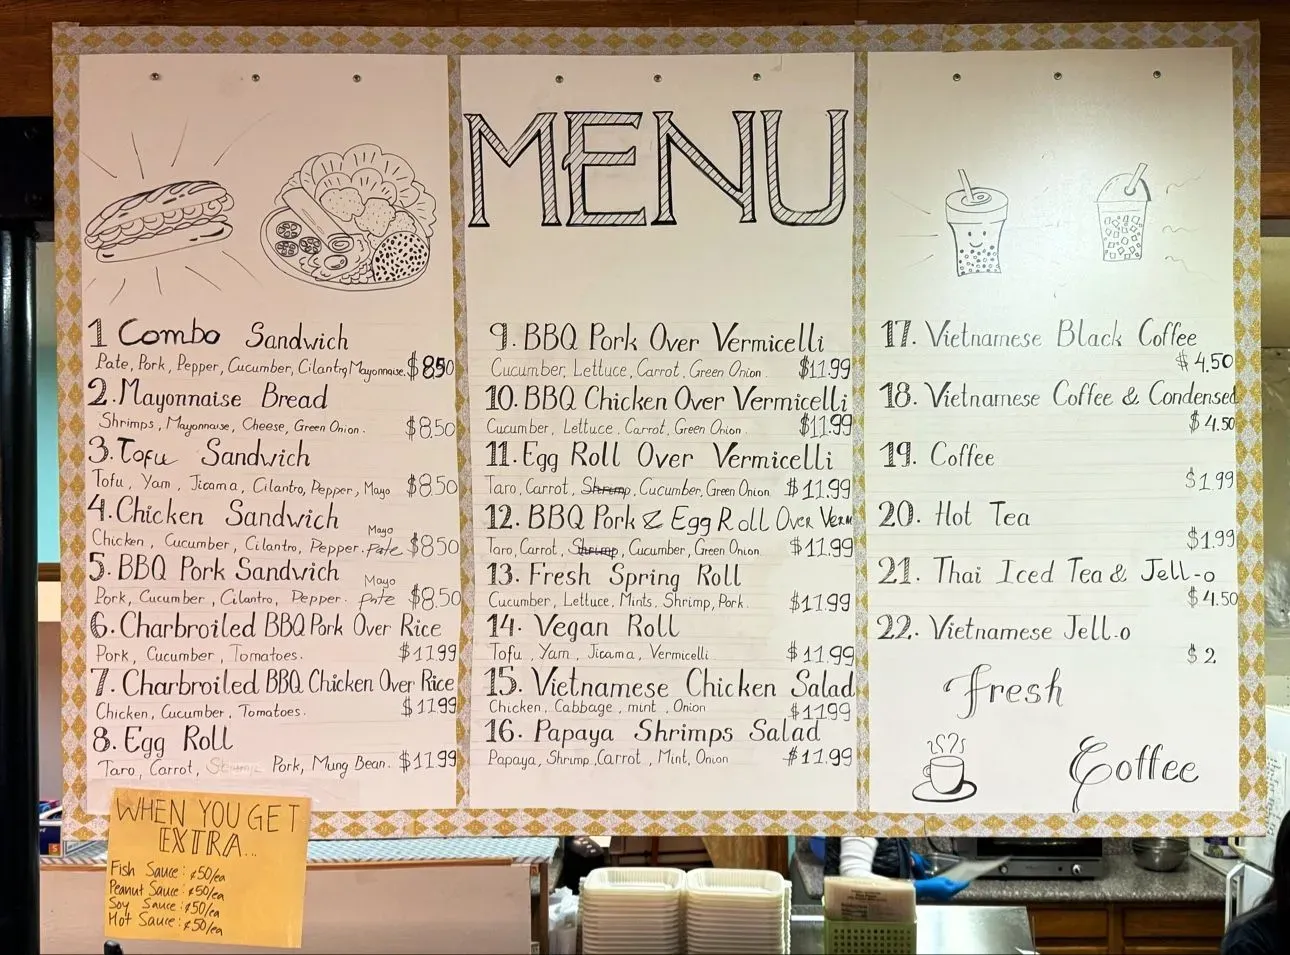 MENU
1 Combo Sandwich
Pate, Pork, Pepper, Cucumber, Cilantro, Mayonnaise. $8.50
2. Mayonnaise Bread
Shrimps, Mayonnaise, Cheese, Green Onion. $8.50
3. Tofu Sandwich
Tofu, Yam, Jicama, Cilantro, Pepper, Mayo $8.50
4. Chicken Sandwich
Mayo
Chicken, Cucumber, Cilantro, Pepper. Pate $8.50
5. BBQ Pork Sandwich
Mayo
Pork, Cucumber, Cilantro, Pepper. Pate $8.50
6. Charbroiled BBQ Pork Over Rice
Pork, Cucumber, Tomatoes. $11.99
7. Charbroiled BBQ Chicken Over Rice
Chicken, Cucumber, Tomatoes. $11.99
8. Egg Roll
Taro, Carrot, Shrimp Pork, Mung Bean. $11.99
9. BBQ Pork Over Vermicelli
Cucumber, Lettuce, Carrot, Green Onion. $11.99
10. BBQ Chicken Over Vermicelli
Cucumber, Lettuce, Carrot, Green Onion. $11.99
11. Egg Roll Over Vermicelli
Taro, Carrot, Shrimp, Cucumber, Green Onion $11.99
12. BBQ Pork & Egg Roll Over Verm
Taro, Carrot, Shrimp, Cucumber, Green Onion $11.99
13. Fresh Spring Roll
Cucumber, Lettuce, Mints, Shrimp, Pork. $11.99
14. Vegan Roll
Tofu, Yam, Jicama, Vermicelli. $11.99
15. Vietnamese Chicken Salad
Chicken, Cabbage, mint, Onion $11.99
16. Papaya Shrimps Salad
Papaya, Shrimp, Carrot, Mint, Onion $11.99
17. Vietnamese Black Coffee
$4.50
18. Vietnamese Coffee & Condensed
$4.50
19. Coffee
$1.99
20. Hot Tea
$1.99
21. Thai Iced Tea & Jell-o
$4.50
22. Vietnamese Jell-o
$2
Fresh
Coffee
WHEN YOU GET
EXTRA...
Fish Sauce: ¢50/ea
Peanut Sauce: ¢50/ea
Soy Sauce: ¢50/ea
Hot Sauce: ¢50/ea